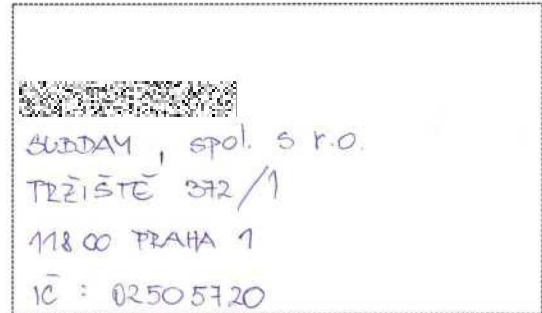 SUBDAY, spol. s r.o.
TRŽIŠTĚ 372/1
118 00 PRAHA 1
IČ : 02505720